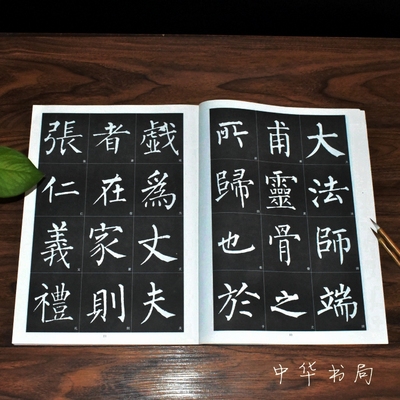 大法師端
甫靈骨之
所歸也於
戲爲丈夫
者在家則
張仁義禮
中华书局